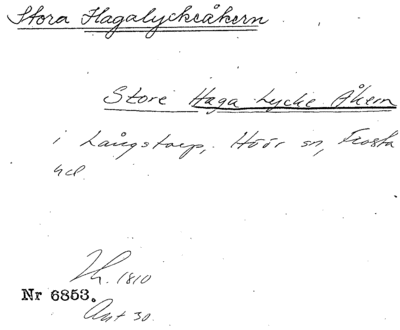 Stora Hagalyckeåkern
Store Haga Lycke Åkern
i Långstorp, Höör sn, Frosta
hd.
Lh. 1810
Nr 6853.
Ant 30.